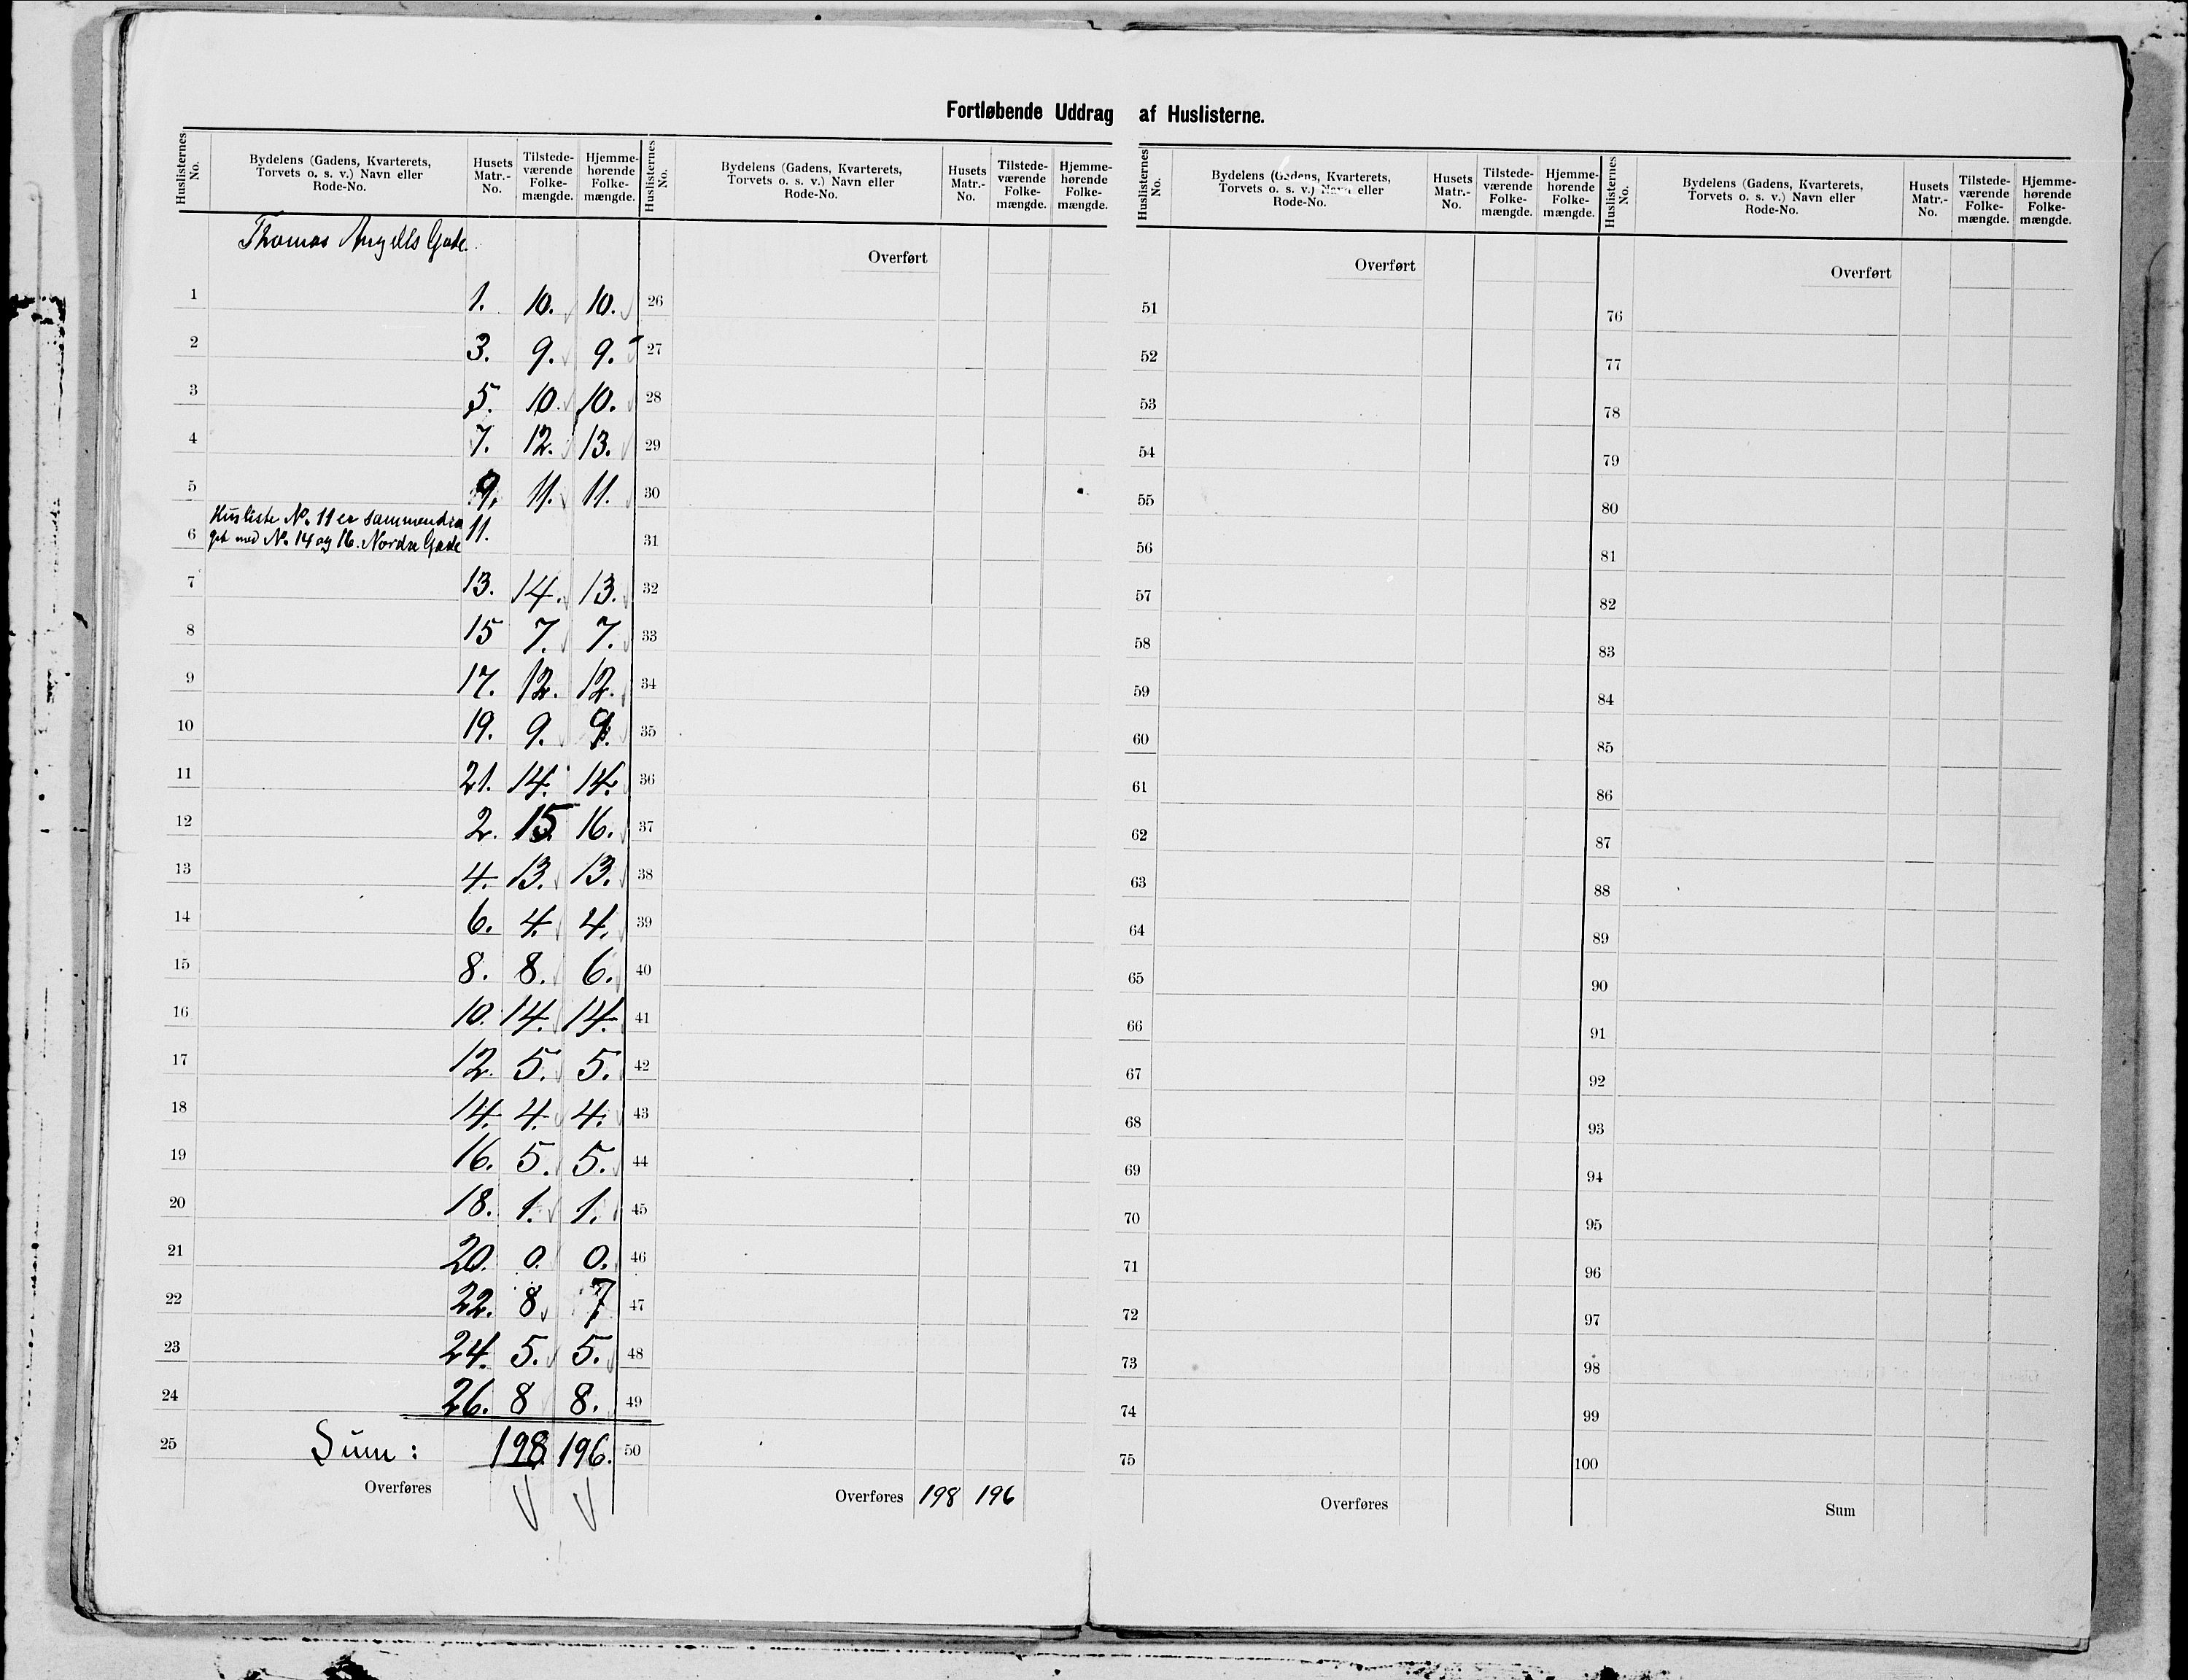 Fortløbende Uddrag af Huslisterne.
Huslisternes No. Bydelens (Gadens, Kvarterets, Torvets o. s. v.) Navn eller Rode-No. Husets Matr.-No. Tilstede-værende Folke-mængde. Hjemme-hørende Folke-mængde.
Huslisternes No. Bydelens (Gadens, Kvarterets, Torvets o. s. v.) Navn eller Rode-No. Husets Matr.-No. Tilstede-værende Folke-mængde. Hjemme-hørende Folke-mængde.
Huslisternes No. Bydelens (Gadens, Kvarterets, Torvets o. s. v.) Navn eller Rode-No. Husets Matr.-No. Tilstede-værende Folke-mængde. Hjemme-hørende Folke-mængde.
Huslisternes No. Bydelens (Gadens, Kvarterets, Torvets o. s. v.) Navn eller Rode-No. Husets Matr.-No. Tilstede-værende Folke-mængde. Hjemme-hørende Folke-mængde.
Thomas Angells Gade.
1 1. 10. 10.
2 3. 9. 9.
3 5. 10. 10.
4 7. 12. 13.
5 9. 11. 11.
Husliste No. 11 er sammendra
6 get med No. 14 og 16. Nordre Gade 11.
7 13. 14. 13.
8 15 7. 7.
9 17. 12. 12.
10 19. 9. 9.
11 21. 14. 14.
12 2. 15. 16.
13 4. 13. 13.
14 6. 4. 4.
15 8. 8. 6.
16 10. 14. 14.
17 12. 5. 5.
18 14. 4. 4.
19 16. 5. 5.
20 18. 1. 1.
21 20. 0. 0.
22 22. 8. 7
23 24. 5. 5.
24 26. 8 8.
25 Sum: 198 196.
Overføres
Overført
26
27
28
29
30
31
32
33
34
35
36
37
38
39
40
41
42
43
44
45
46
47
48
49
50
Overføres 198 196
Overført
51
52
53
54
55
56
57
58
59
60
61
62
63
64
65
66
67
68
69
70
71
72
73
74
75
Overføres
Overført
76
77
78
79
80
81
82
83
84
85
86
87
88
89
90
91
92
93
94
95
96
97
98
99
100
Sum